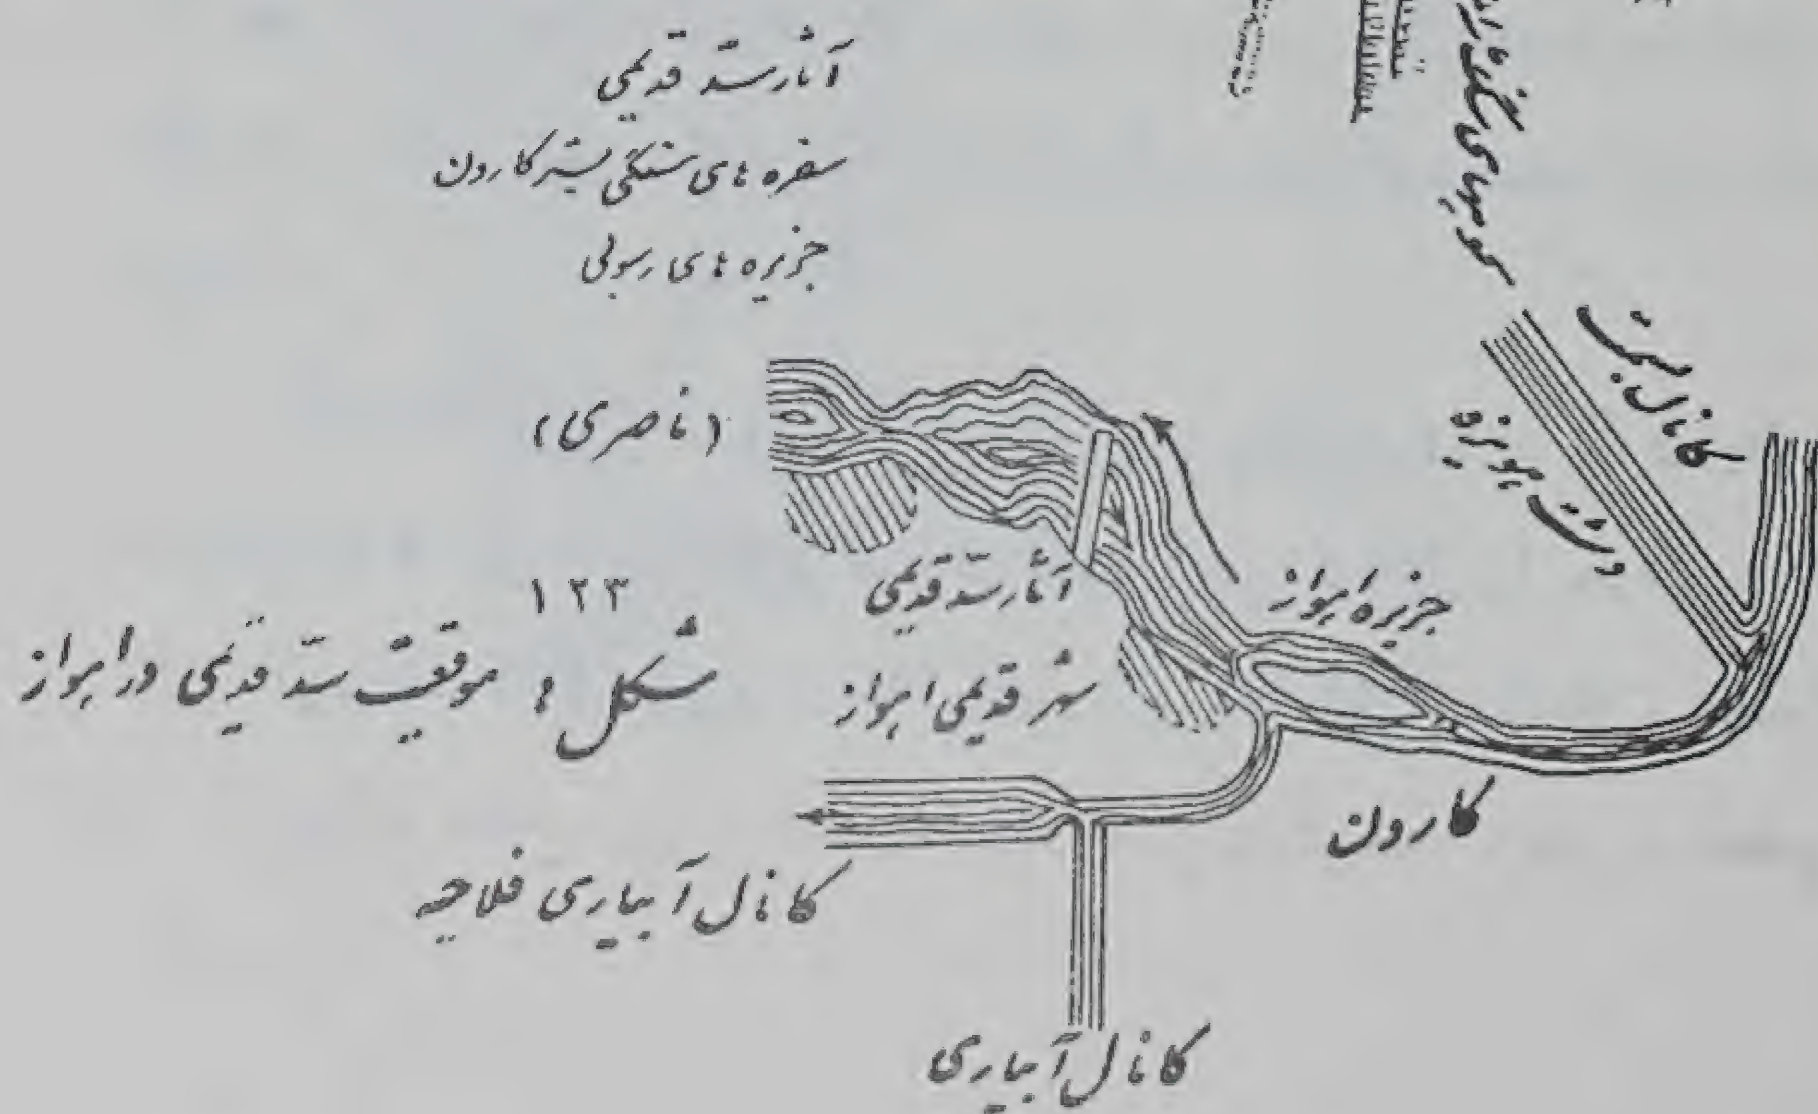 آثار سدّ قدیمی
سفره های سنگی بستر کارون
جزیره های رسوبی
کانال بسمت
دشت هویزه
(ناصری)
آثار سدّ قدیمی
جزیره اهواز
شهر قدیمی اهواز
۱۲۳
شکل : موقعیت سدّ قدیمی در اهواز
کارون
کانال آبیاری فلاحیه
کانال آبیاری